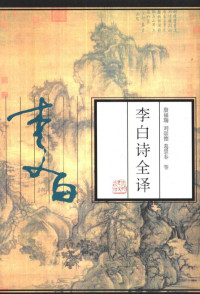 李白诗全译
詹福瑞 刘崇德 葛景春 等
李白